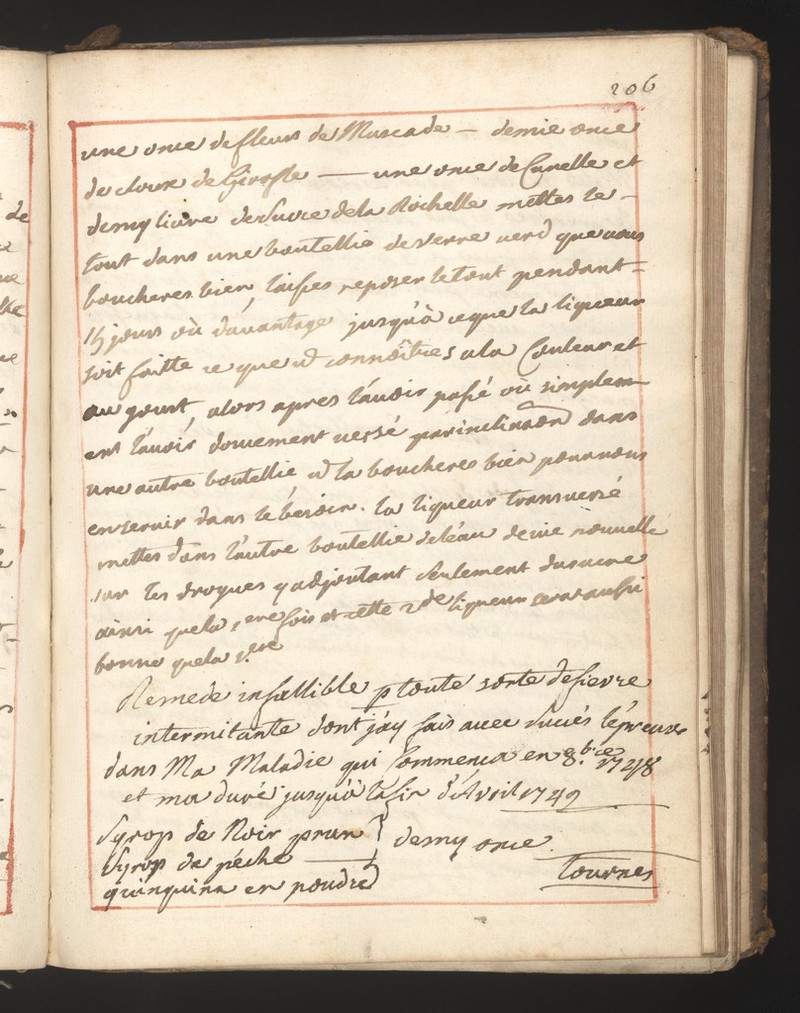 206
une once de fleurs de Muscade — demie once
de cloux de Girofle — une once de Canelle et
demy livre de Sucre de la Rochelle mettes le -
tout dans une bouteille de verre verd que vous
boucheres bien, laisses reposer le tout pendant -
15 jours où davantage jusqu'à ce que la liqueur
soit faitte ce que connoîtres a la Couleur et
au goust, alors apres l'avoir passé où simplem
ent l'avoir doucement versé par inclination dans
une autre bouteille la boucheres bien pour vous
en servir dans le besoin. la liqueur transversé
mettes dans l'autre bouteille de l'eau de vie nouvelle
sur les drogues y adjoutant seulement du sucre
ainsi que la 1ere fois et cette 2de liqueur sera aussi
bonne que la 1ere
Remede infallible p toute sorte de fievre
intermitante dont j'ay fais avec succés l'epreuve
dans Ma Maladie qui Commença en 8bre 1748
et m'a duré jusqu'à la fin d'Avril 1749
Syrop de Noir prun }
Syrop de péche — } demy once.
quinquina en poudre }
tournes